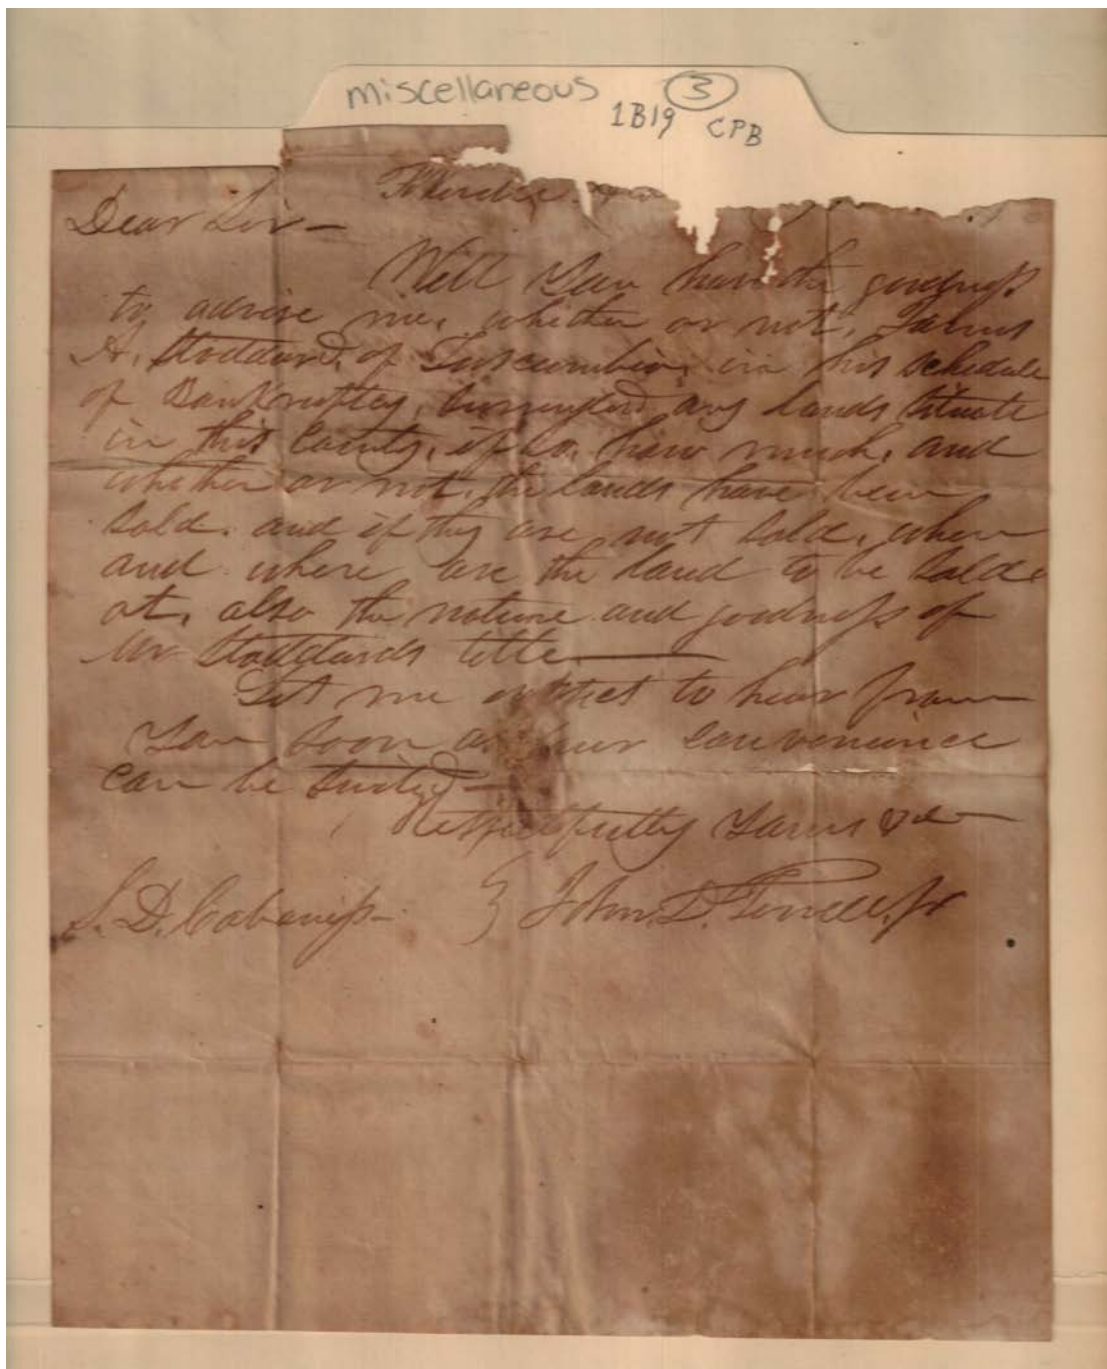 miscellaneous 3
1B19 CPB
Dear Sir—
Will you have the goodness
to advise me, whether or not, James
A. Stoddard, of Tuscumbia, in his schedule
of Bankruptcy, any lands situate
in this County, if so, how much, and
whether or not, the lands have been
sold. and if they are not sold, when
and where are the land to be sold
at, also the nature and goodness of
Mr Stoddards title—
Let me expect to hear from
you soon as your convenience
can be suited—
Respectfully Yours &c
S. D. Cabaniss— } John D. Jr